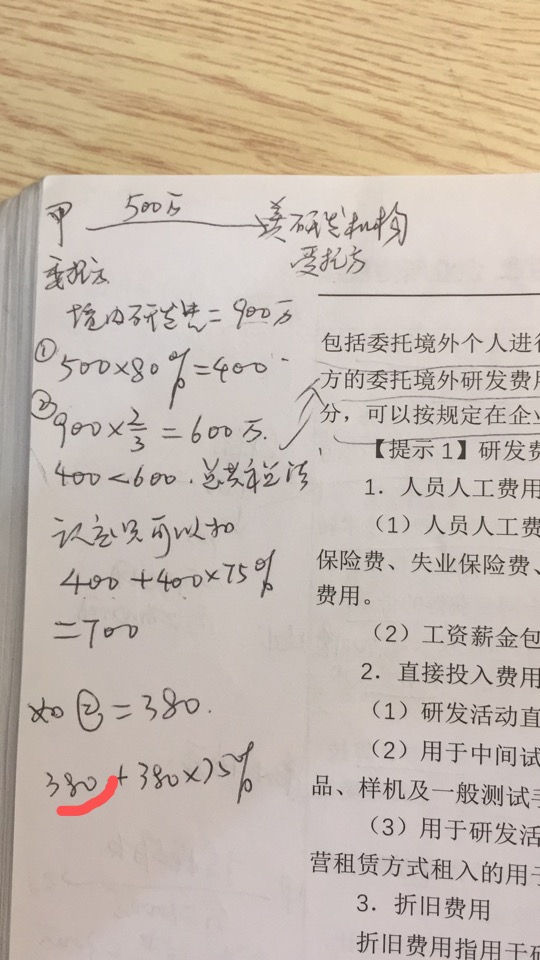 甲 500万 美研发机构
委托方 受托方
境内研发费=900万
① 500×80%=400
② 900×2/3=600万.
400<600.总共税法
认定只可以扣
400+400×75%
=700
如②=380.
380+380×75%
包括委托境外个人进行
方的委托境外研发费用
分,可以按规定在企业
【提示1】研发费
1.人员人工费用
(1)人员人工费
保险费、失业保险费、
费用。
(2)工资薪金包
2.直接投入费用
(1)研发活动直
(2)用于中间试
品、样机及一般测试手
(3)用于研发活
营租赁方式租入的用于
3.折旧费用
折旧费用指用于研